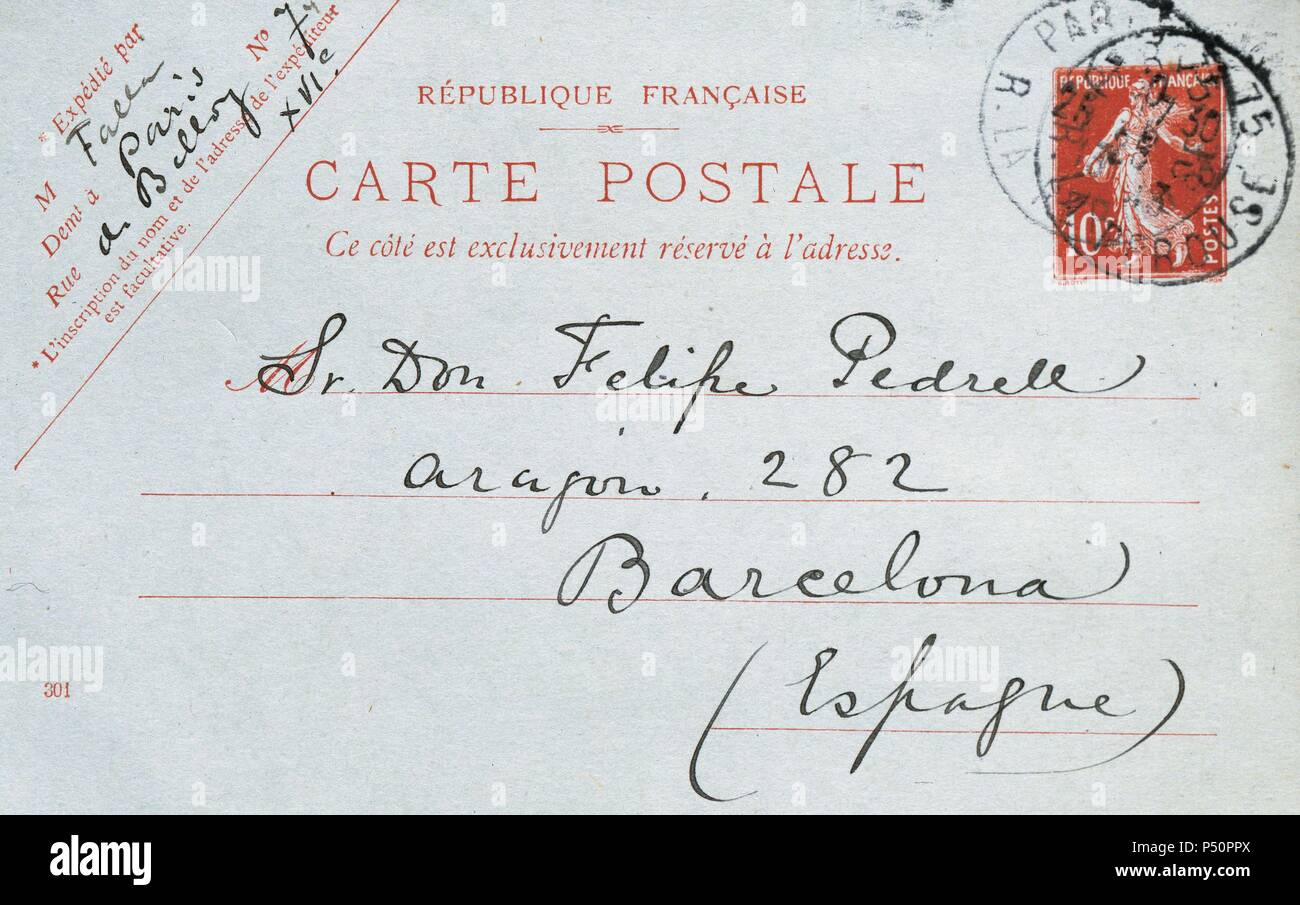 * Expédié par
M Falla
Demt à Paris
Rue de Belloy No 7
XVIe
* L'inscription du nom et de l'adresse de l'expéditeur
est facultative.
RÉPUBLIQUE FRANÇAISE
CARTE POSTALE
Ce côté est exclusivement réservé à l'adresse.
RÉPUBLIQUE FRANÇAISE
10c
POSTES
PAR
75
R. LA
M
Sr. Don Felipe Pedrell
Aragón. 282
Barcelona
(Espagne)
301
alamy
Image ID: P50PPX
www.alamy.com